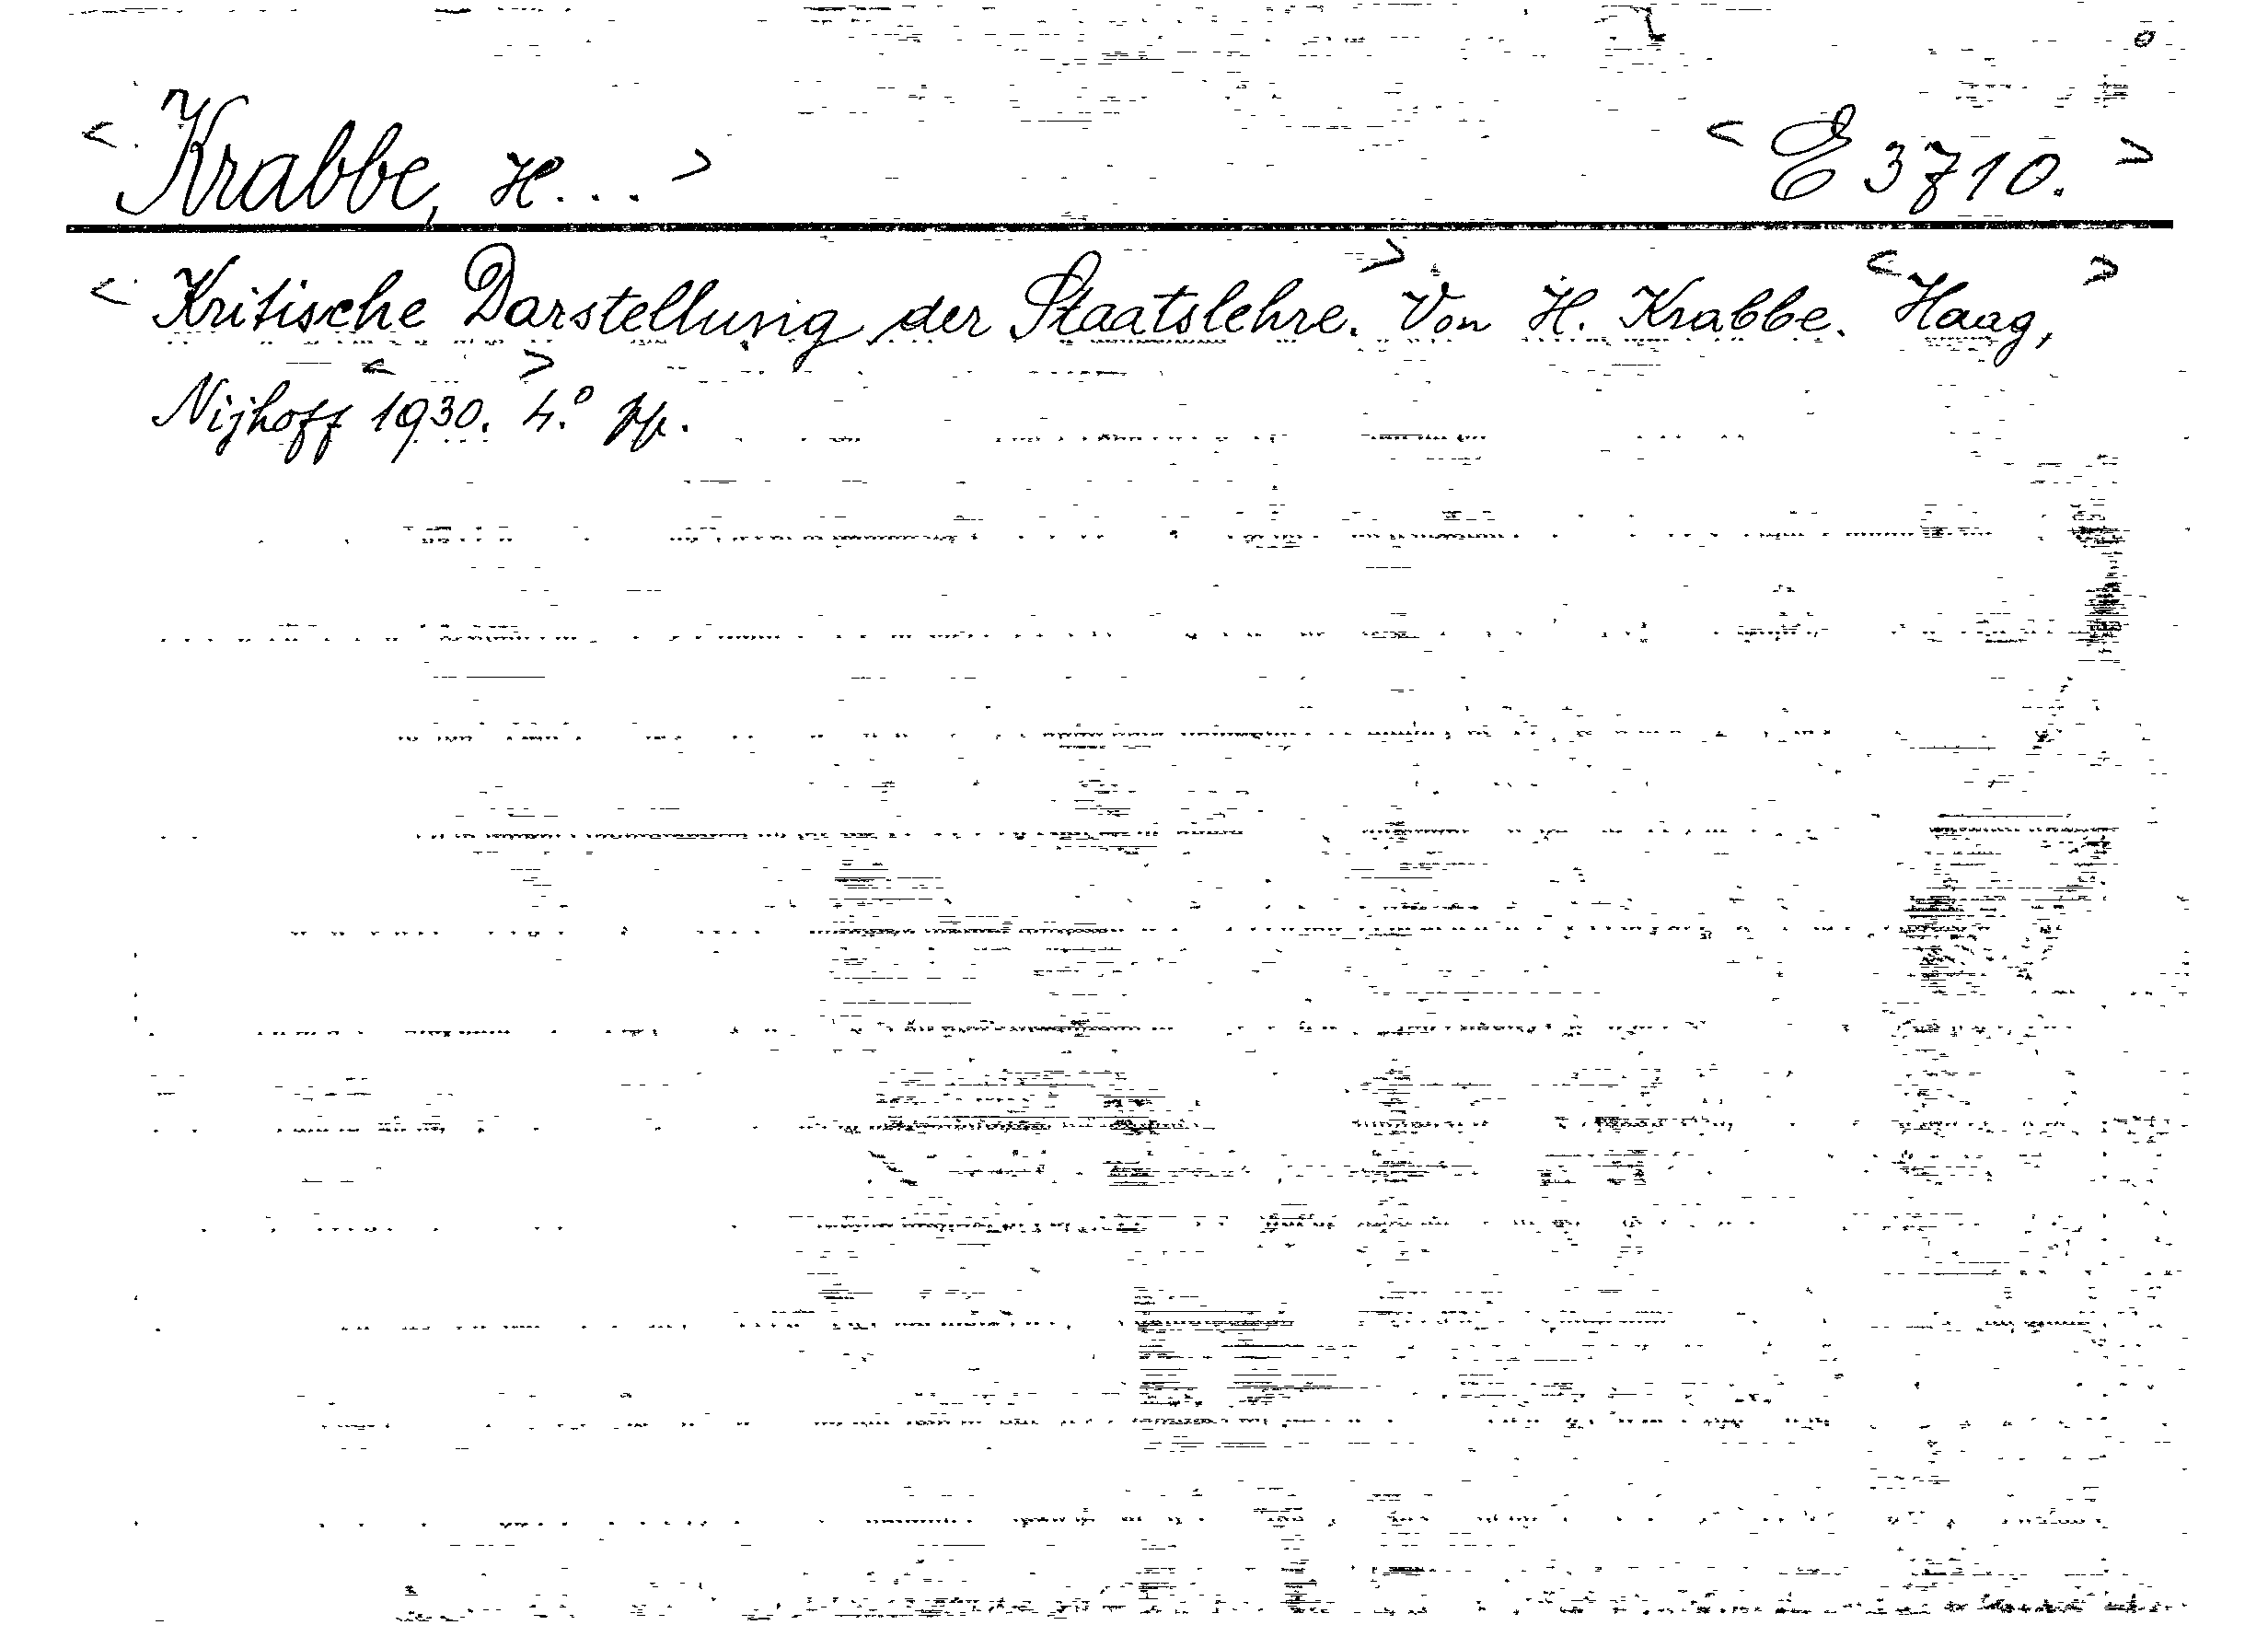 < Krabbe, H... > < E 3710. >
< Kritische Darstellung der Staatslehre. > Von H. Krabbe. < Haag, >
Nijhoff < 1930. > 4.° pp.